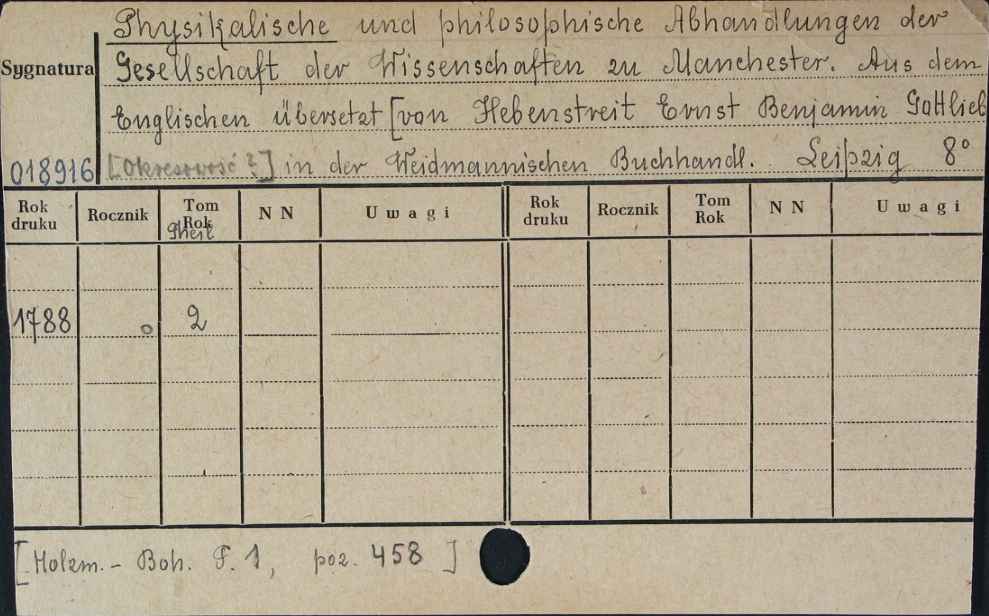 Physikalische und philosophische Abhandlungen der
Sygnatura Gesellschaft der Wissenschaften zu Manchester. Aus dem
Englischen übersetzt [von Hebenstreit Ernst Benjamin Gottlieb
018916 [Okresowość?] in der Weidmannischen Buchhandl. Leipzig 8°
Rok druku Rocznik Tom Rok Theil N N Uwagi Rok druku Rocznik Tom Rok N N Uwagi
1788 2
[Holzm. - Boh. F. 1, poz. 458]